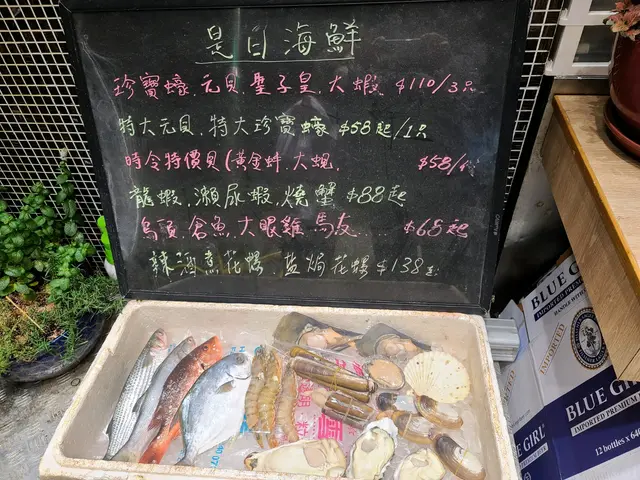 是日海鮮
珍寶蠔, 元貝, 聖子皇, 大蝦 $110/3只
特大元貝, 特大珍寶蠔 $58起/1只
時令特價貝(黃金蚌, 大蜆, $58/
龍蝦, 瀨尿蝦, 燒蟹 $88起
烏頭, 倉魚, 大眼雞, 馬友..... $68起
辣酒煮花螺, 盐焗花螺 $138起
BLUE GIRL
IMPORTED PREMIUM
HANDLE WITH
IMPORTED
BLUE GIRL
IMPORTED PREMIUM
12 bottles x 640